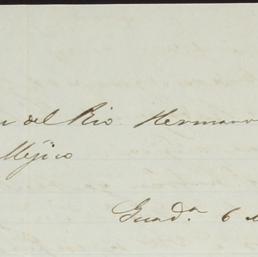 del Rio Hermano
Méjico
Guad.ª 6